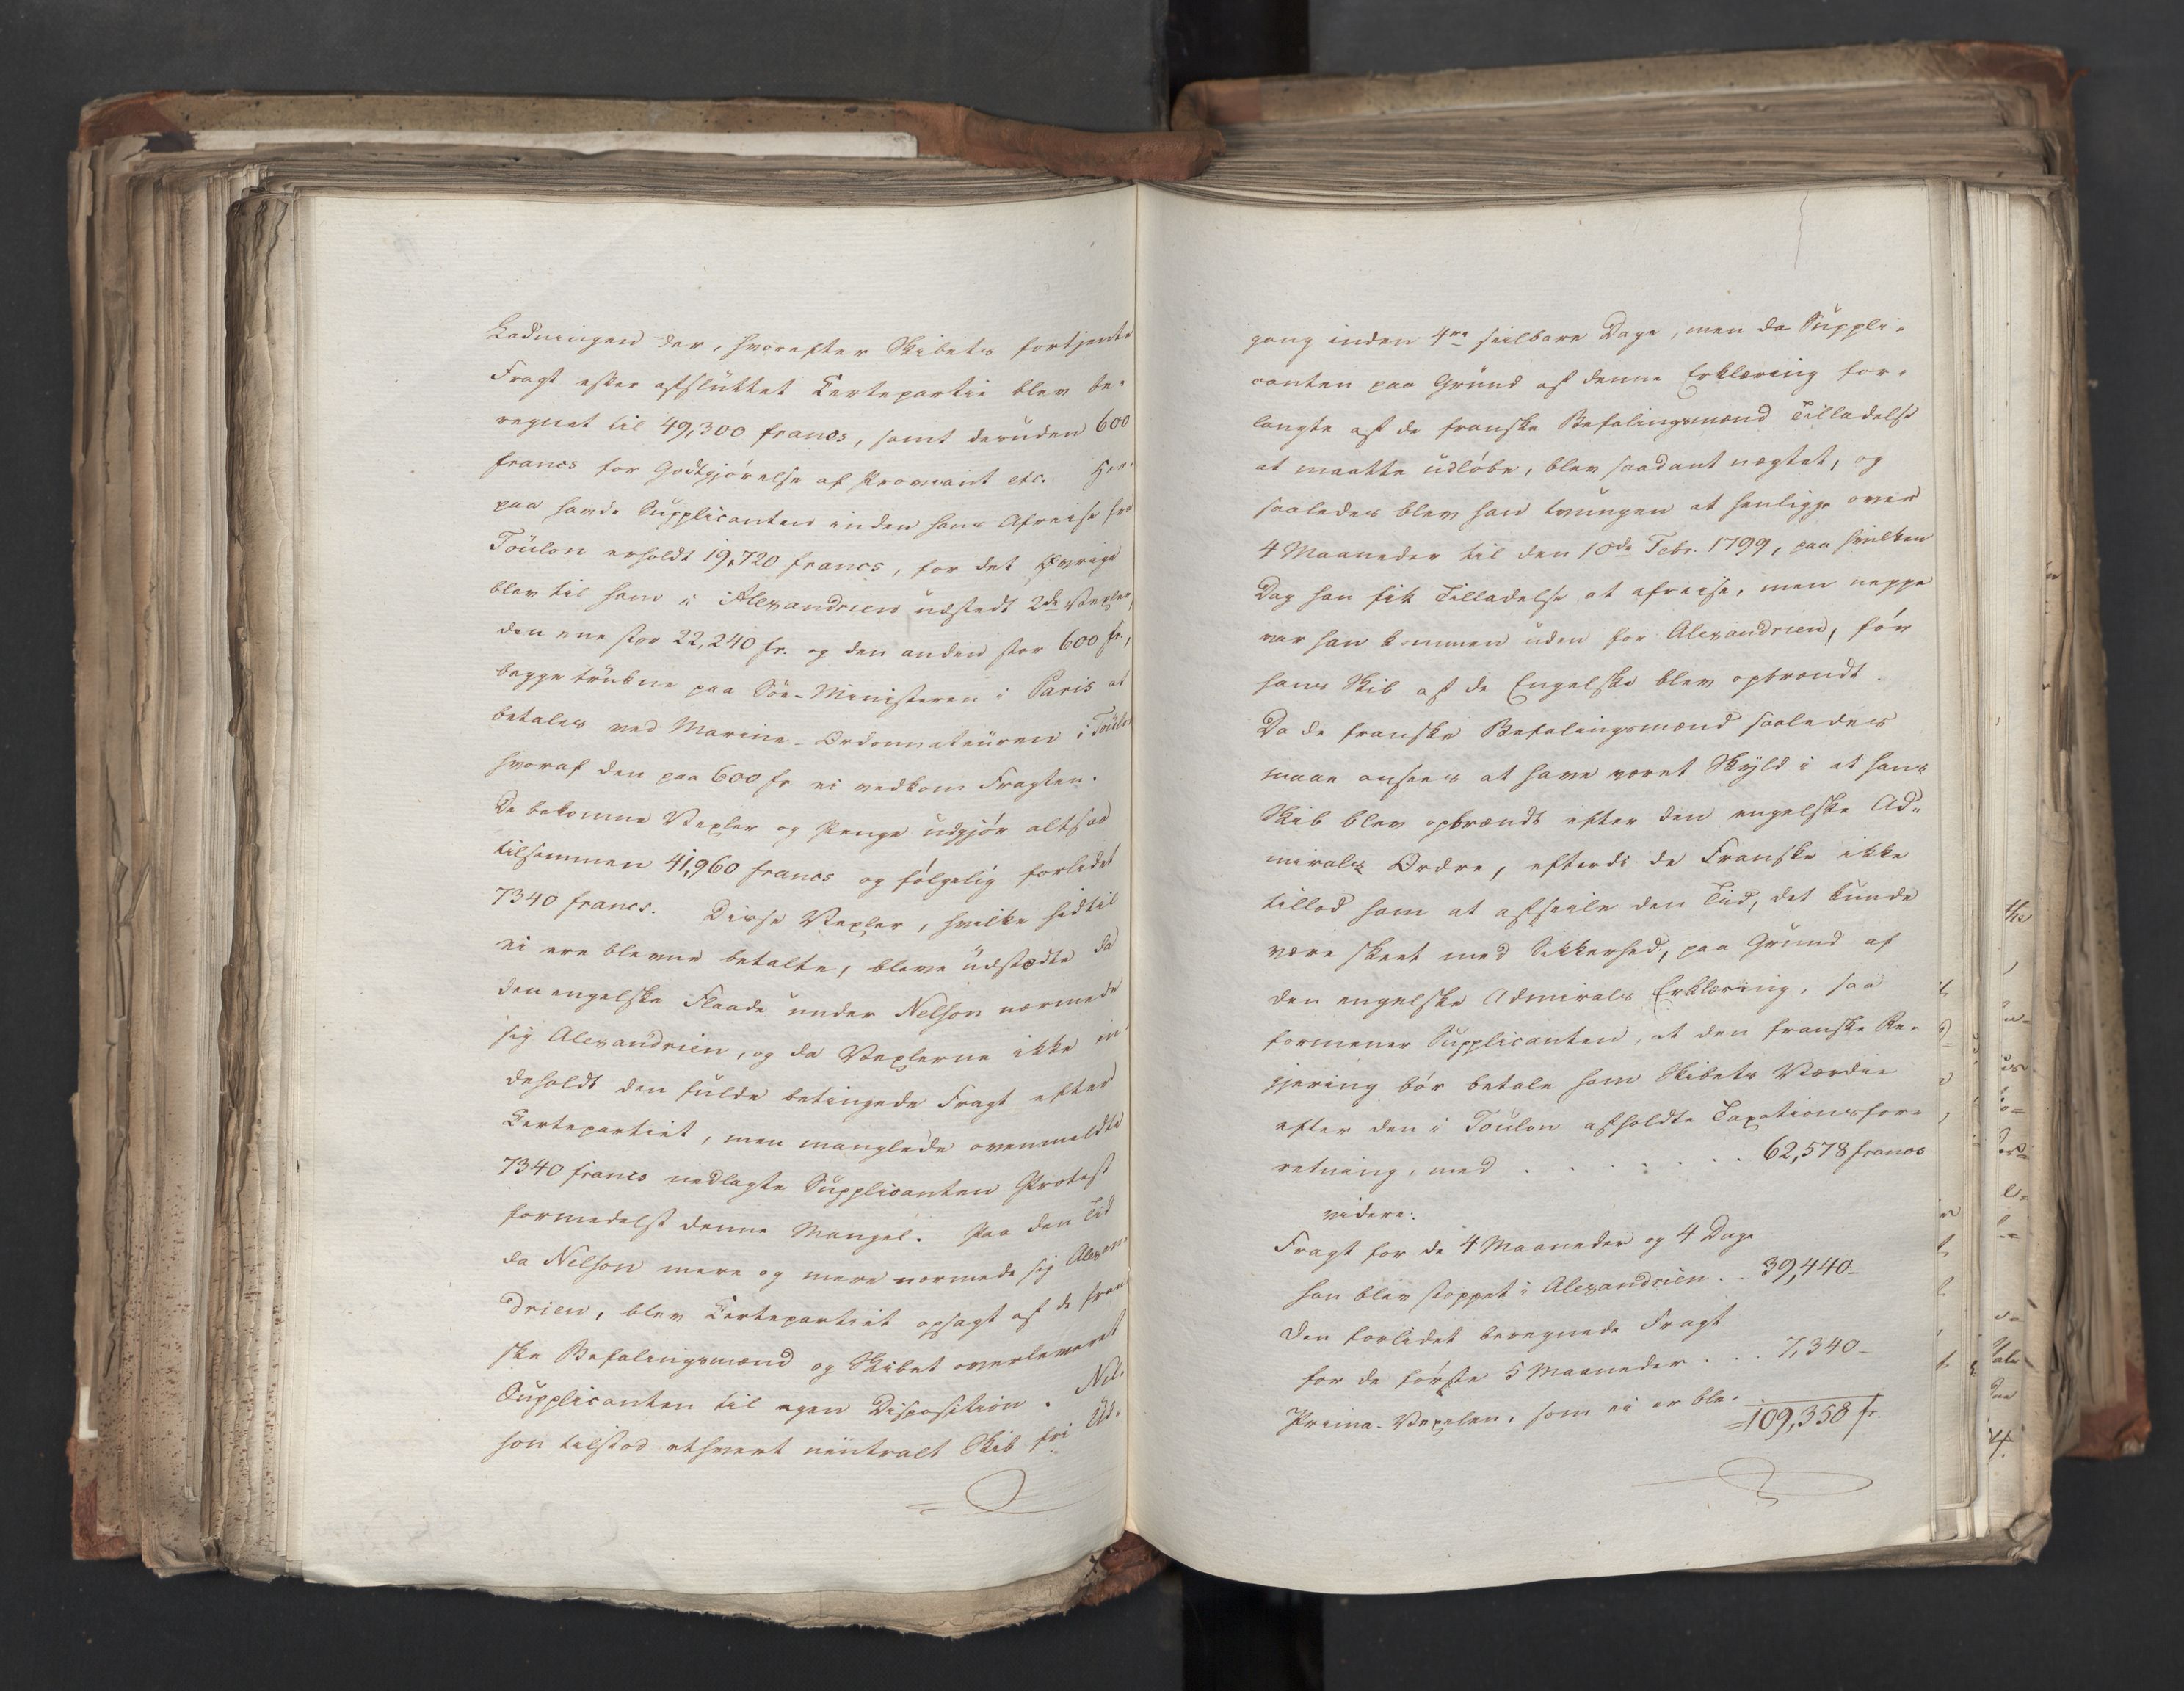 Ladningen der, hvorefter Skibets fortjente
Fragt efter afsluttet Certepartie blev be-
regnet til 49,300 francs, samt desuden 600
francs for Godtgjørelse af Proviant etc. Her-
paa havde Supplicanten inden hans Afreise fra
Toulon erholdt 19,720 francs, for det Øvrige
blev til ham i Alexandrien udstedt 2de Vexler,
den ene stor 22,240 fr. og den anden stor 600 fr.,
begge trukne paa Söe-Ministeren i Paris at
betales ved Marine-Ordonnateuren i Toulon
hvoraf den paa 600 fr. ei vedkom Fragten.
De bekomne Vexler og Penge udgjör altsaa
tilsammen 41,960 francs og følgelig forlidet
7340 francs. Disse Vexler, hvilke hidtil
ei ere blevne betalte, bleve udstædte da
den engelske Flaade under Nelson nærmede
sig Alexandrien, og da Vexlerne ikke in-
deholdt den fulde betingede Fragt efter
Certepartiet, men manglede ovenmeldte
7340 francs nedlagte Supplicanten Protest
formedelst denne Mangel. Paa den Tid
da Nelson mere og mere nærmede sig Alexan-
drien, blev Certepartiet opsagt af de fran-
ske Befalingsmænd og Skibet overleveret
Supplicanten til egen Disposition. Nel-
son tilstod ethvert neutralt Skib fri Ud-
gang inden 4re seilbare Dage, men da Suppli-
canten paa Grund af denne Erklæring for-
langte af de franske Befalingsmænd Tilladelse
at maatte udløbe, blev saadant nægtet, og
saaledes blev han tvungen at henligge over
4 Maaneder til den 10de Febr. 1799, paa hvilken
Dag han fik Tilladelse at afreise, men neppe
var han kommen uden for Alexandrien, før
hans Skib af de Engelske blev opbrændt.
Da de franske Befalingsmænd saaledes
maae ansees at have været Skyld i at hans
Skib blev opbrændt efter den engelske Ad-
mirals Ordre, efterdi de Franske ikke
tillod ham at afseile den Tid, det kunde
være skeet med Sikkerhed, paa Grund af
den engelske Admirals Erklæring, saa
formener Supplicanten, at den franske Re-
gjering bør betale ham Skibets Værdie
efter den i Toulon afholdte Taxationsfor-
retning, med . . . . . . . 62,578 francs
videre:
Fragt for de 4 Maaneder og 4 Dage
han blev stoppet i Alexandrien . . 39,440-
Den forlidet beregnede Fragt
for de første 5 Maaneder . . . 7,340-
=109,358 fr.
Prima-Vexelen, som ei er ble-